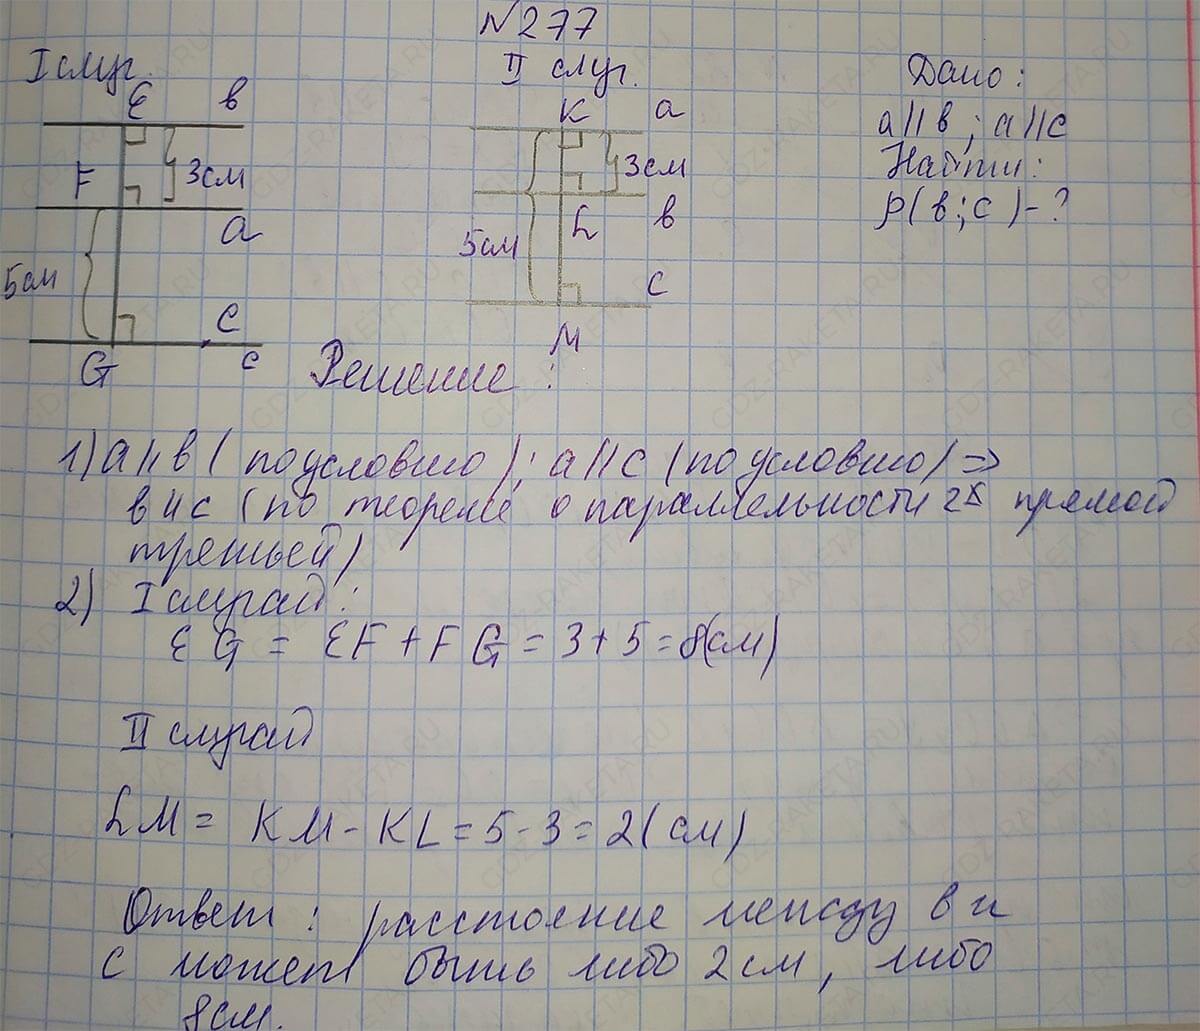 N277
I случ.
II случ.
Дано:
a || b ; a || c
Найти:
ρ(b; c) - ?
E b
F 3см
a
5см
C
G c
K a
3см
L b
5см
c
M
Решение:
1) a || b (по условию); a || c (по условию) =>
b || c (по теореме о параллельности 2х прямой
третьей)
2) I случай:
EG = EF + FG = 3 + 5 = 8(см)
II случай
LM = KM - KL = 5 - 3 = 2 (см)
Ответ: расстояние между b и
c может быть либо 2 см, либо
8см.
GDZ-RAKETA.RU